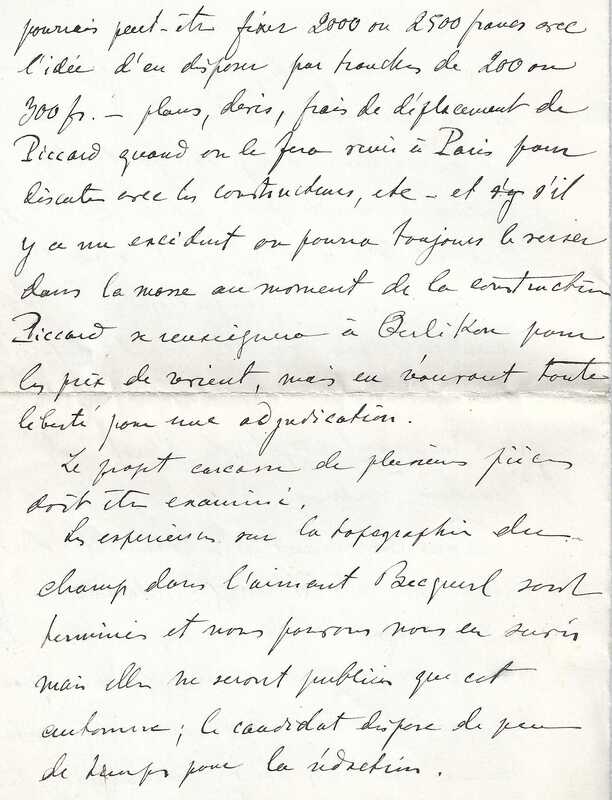 pourrais peut-être fixer 2000 ou 2500 francs avec
l'idée d'en disposer par tranches de 200 ou
300 fr. — plans, devis, frais de déplacement de
Piccard quand on le fera venir à Paris pour
discuter avec les constructeurs, etc — et s'il
y a un excédent on pourra toujours le verser
dans la masse au moment de la construction
Piccard se renseignera à Oerlikon pour
les prix de revient, mais en réservant toute
liberté pour une adjudication.
Le projet carcasse de plusieurs pièces
doit être examiné.
Les expériences sur la topographie du
champ dans l'aimant Becquerel sont
terminées et nous pouvons nous en servir
mais elles ne seront publiées que cet
automne ; le candidat dispose de peu
de temps pour la rédaction.